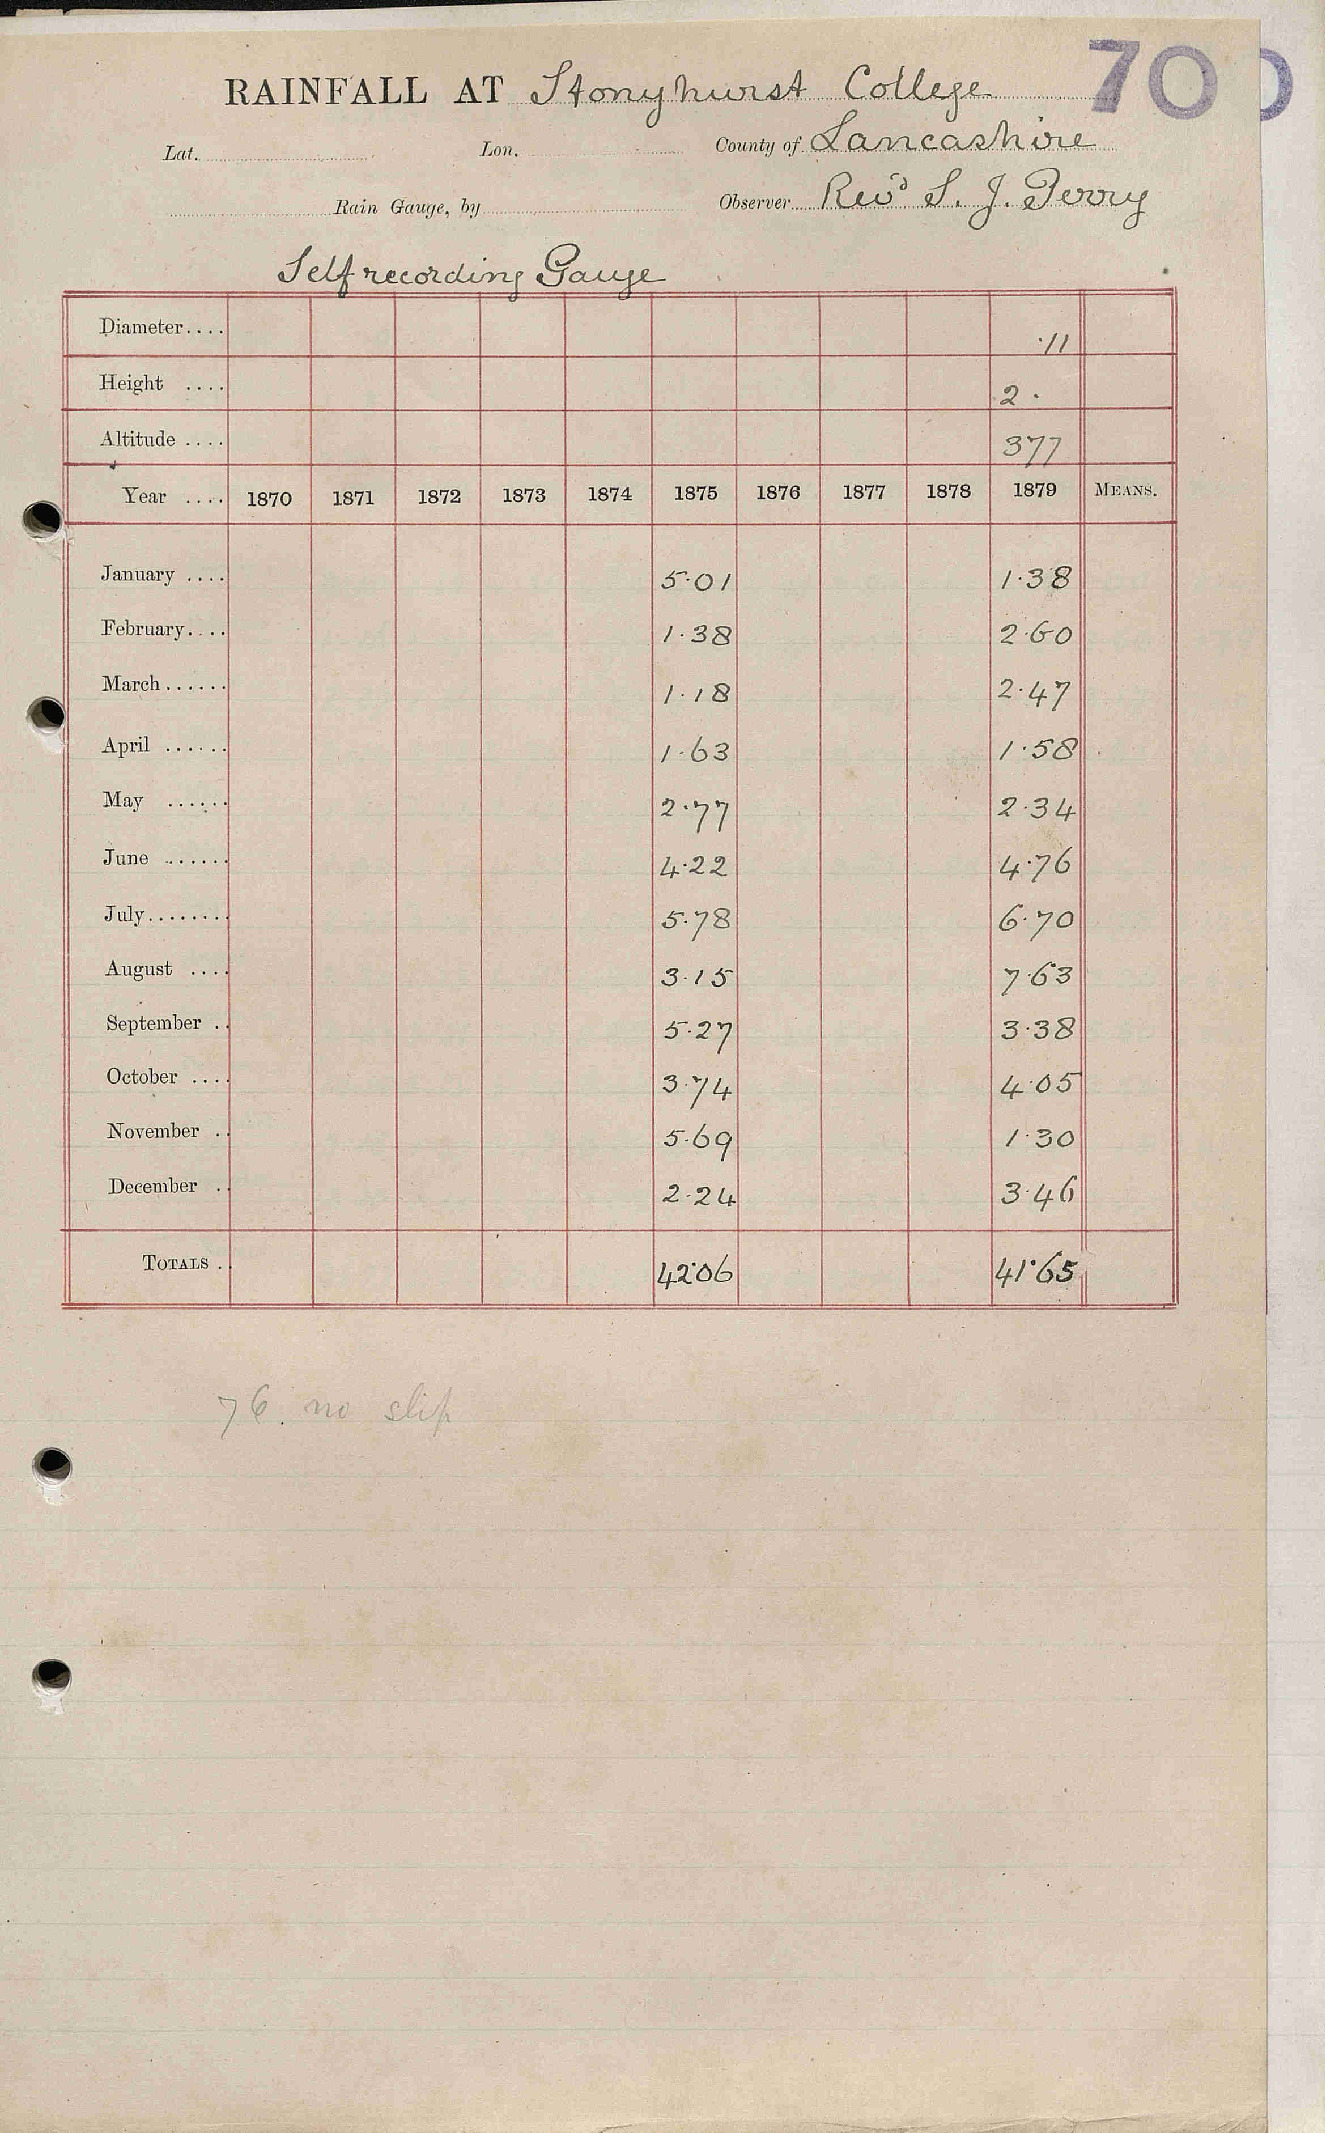 RAINFALL AT Stonyhurst College 70
Lat. Lon. County of Lancashire
Rain Gauge, by Observer Revd S. J. Perry
Self recording Gauge
Diameter.... ·11
Height .... 2 ·
Altitude .... 377
Year .... 1870 1871 1872 1873 1874 1875 1876 1877 1878 1879 MEANS.
January .... 5·01 1·38
February.... 1·38 2·60
March...... 1·18 2·47
April ...... 1·63 1·58
May ...... 2·77 2·34
June ...... 4·22 4·76
July........ 5·78 6·70
August .... 3·15 7·63
September .. 5·27 3·38
October .... 3·74 4·05
November .. 5·69 1·30
December .. 2·24 3·46
TOTALS . 42·06 41·65
76. no slip